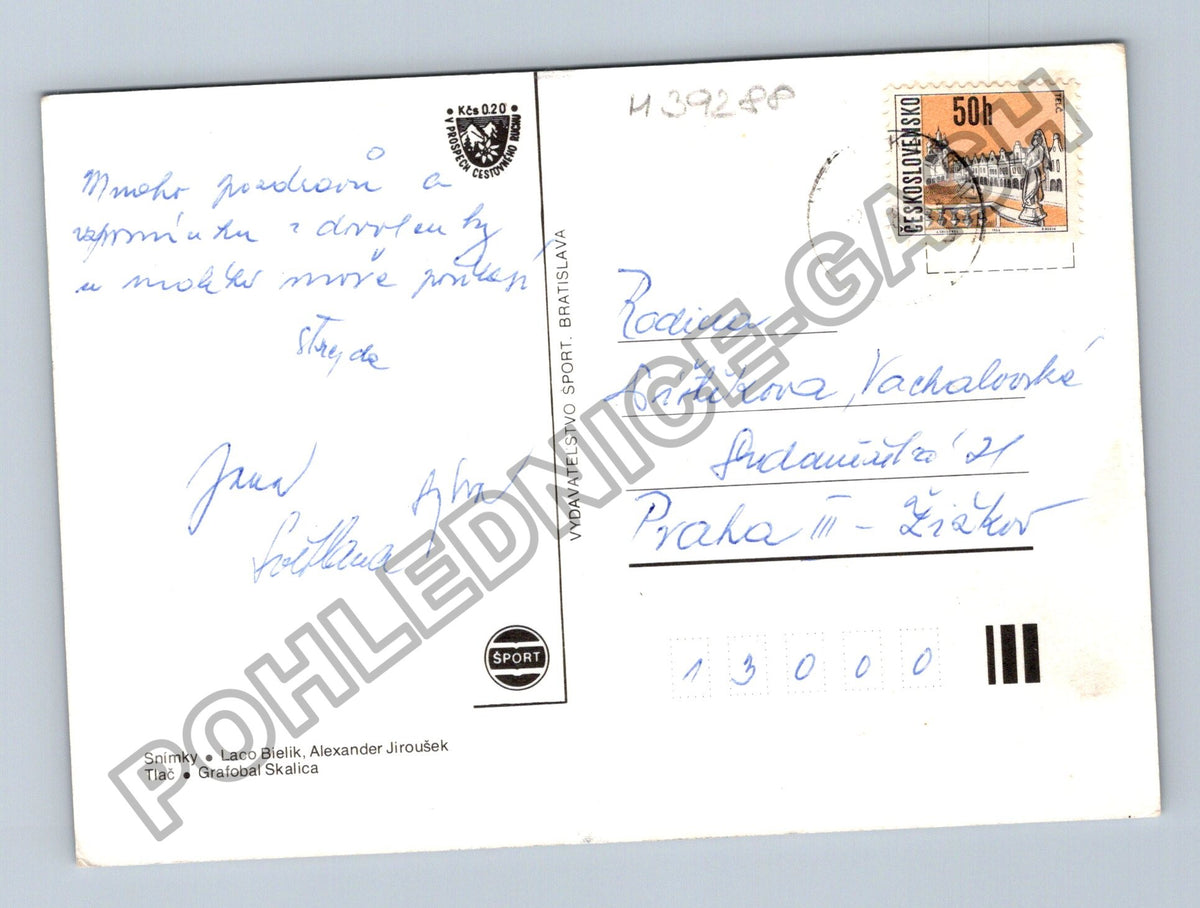 Kčs 0.20
V PROSPECH CESTOVNÉHO RUCHU
Mnoho pozdravů a
vzpomínku z dovolenky
u moře posílají
strejda
Jana
Světlana
VYDAVATEĽSTVO ŠPORT, BRATISLAVA
ŠPORT
Snímky • Laco Bielik, Alexander Jiroušek
Tlač • Grafobal Skalica
M 39288
ČESKOSLOVENSKO
50h
TELČ
Rodina
Vachalovská
21
Praha III - Žižkov
13000
POHLEDNICE-GASH